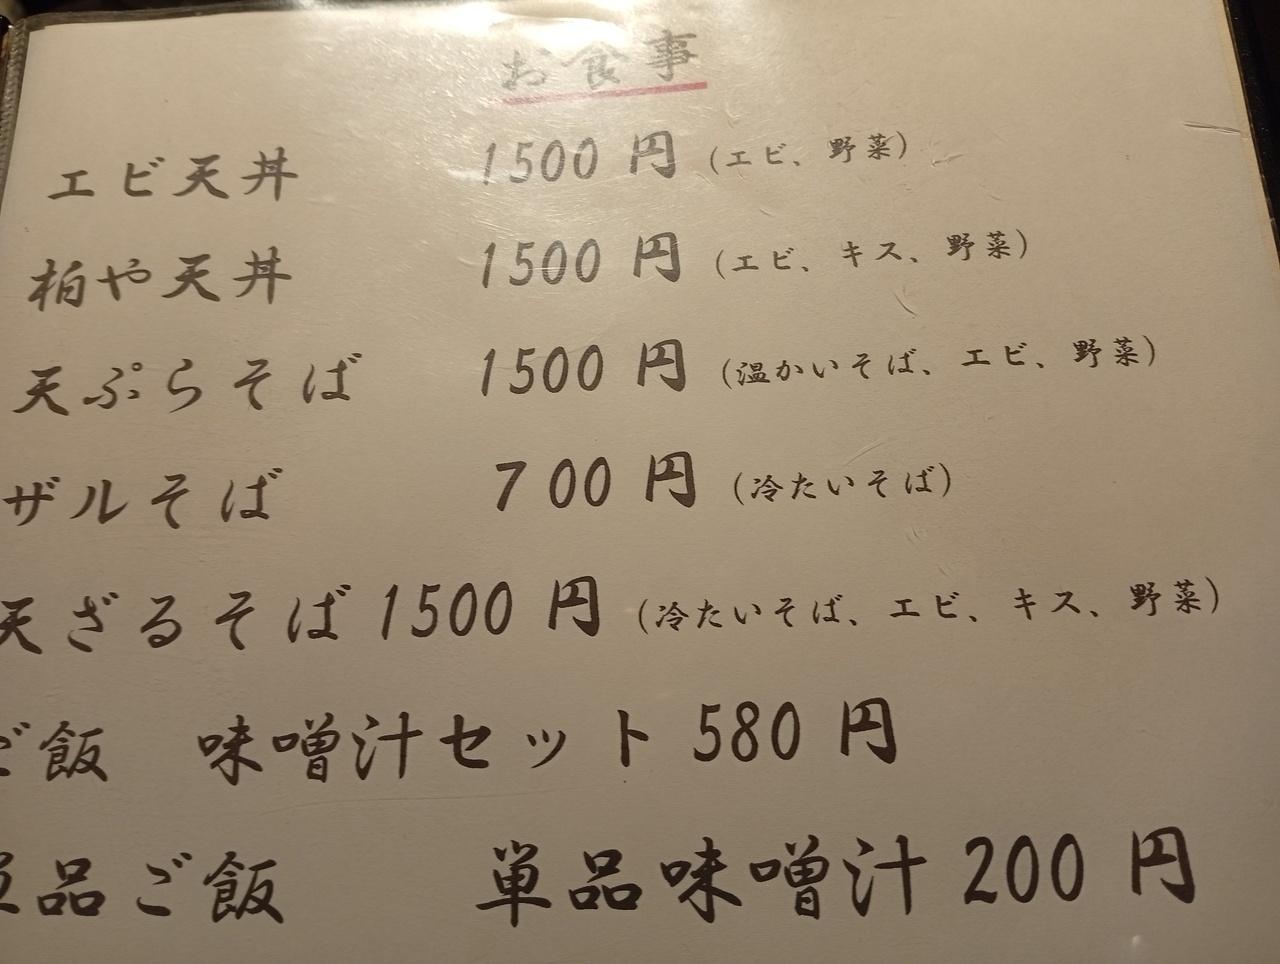 お食事
エビ天丼 1500円 (エビ、野菜)
柏や天丼 1500円 (エビ、キス、野菜)
天ぷらそば 1500円 (温かいそば、エビ、野菜)
ザルそば 700円 (冷たいそば)
天ざるそば 1500円 (冷たいそば、エビ、キス、野菜)
ご飯 味噌汁セット 580円
単品ご飯 単品味噌汁 200円